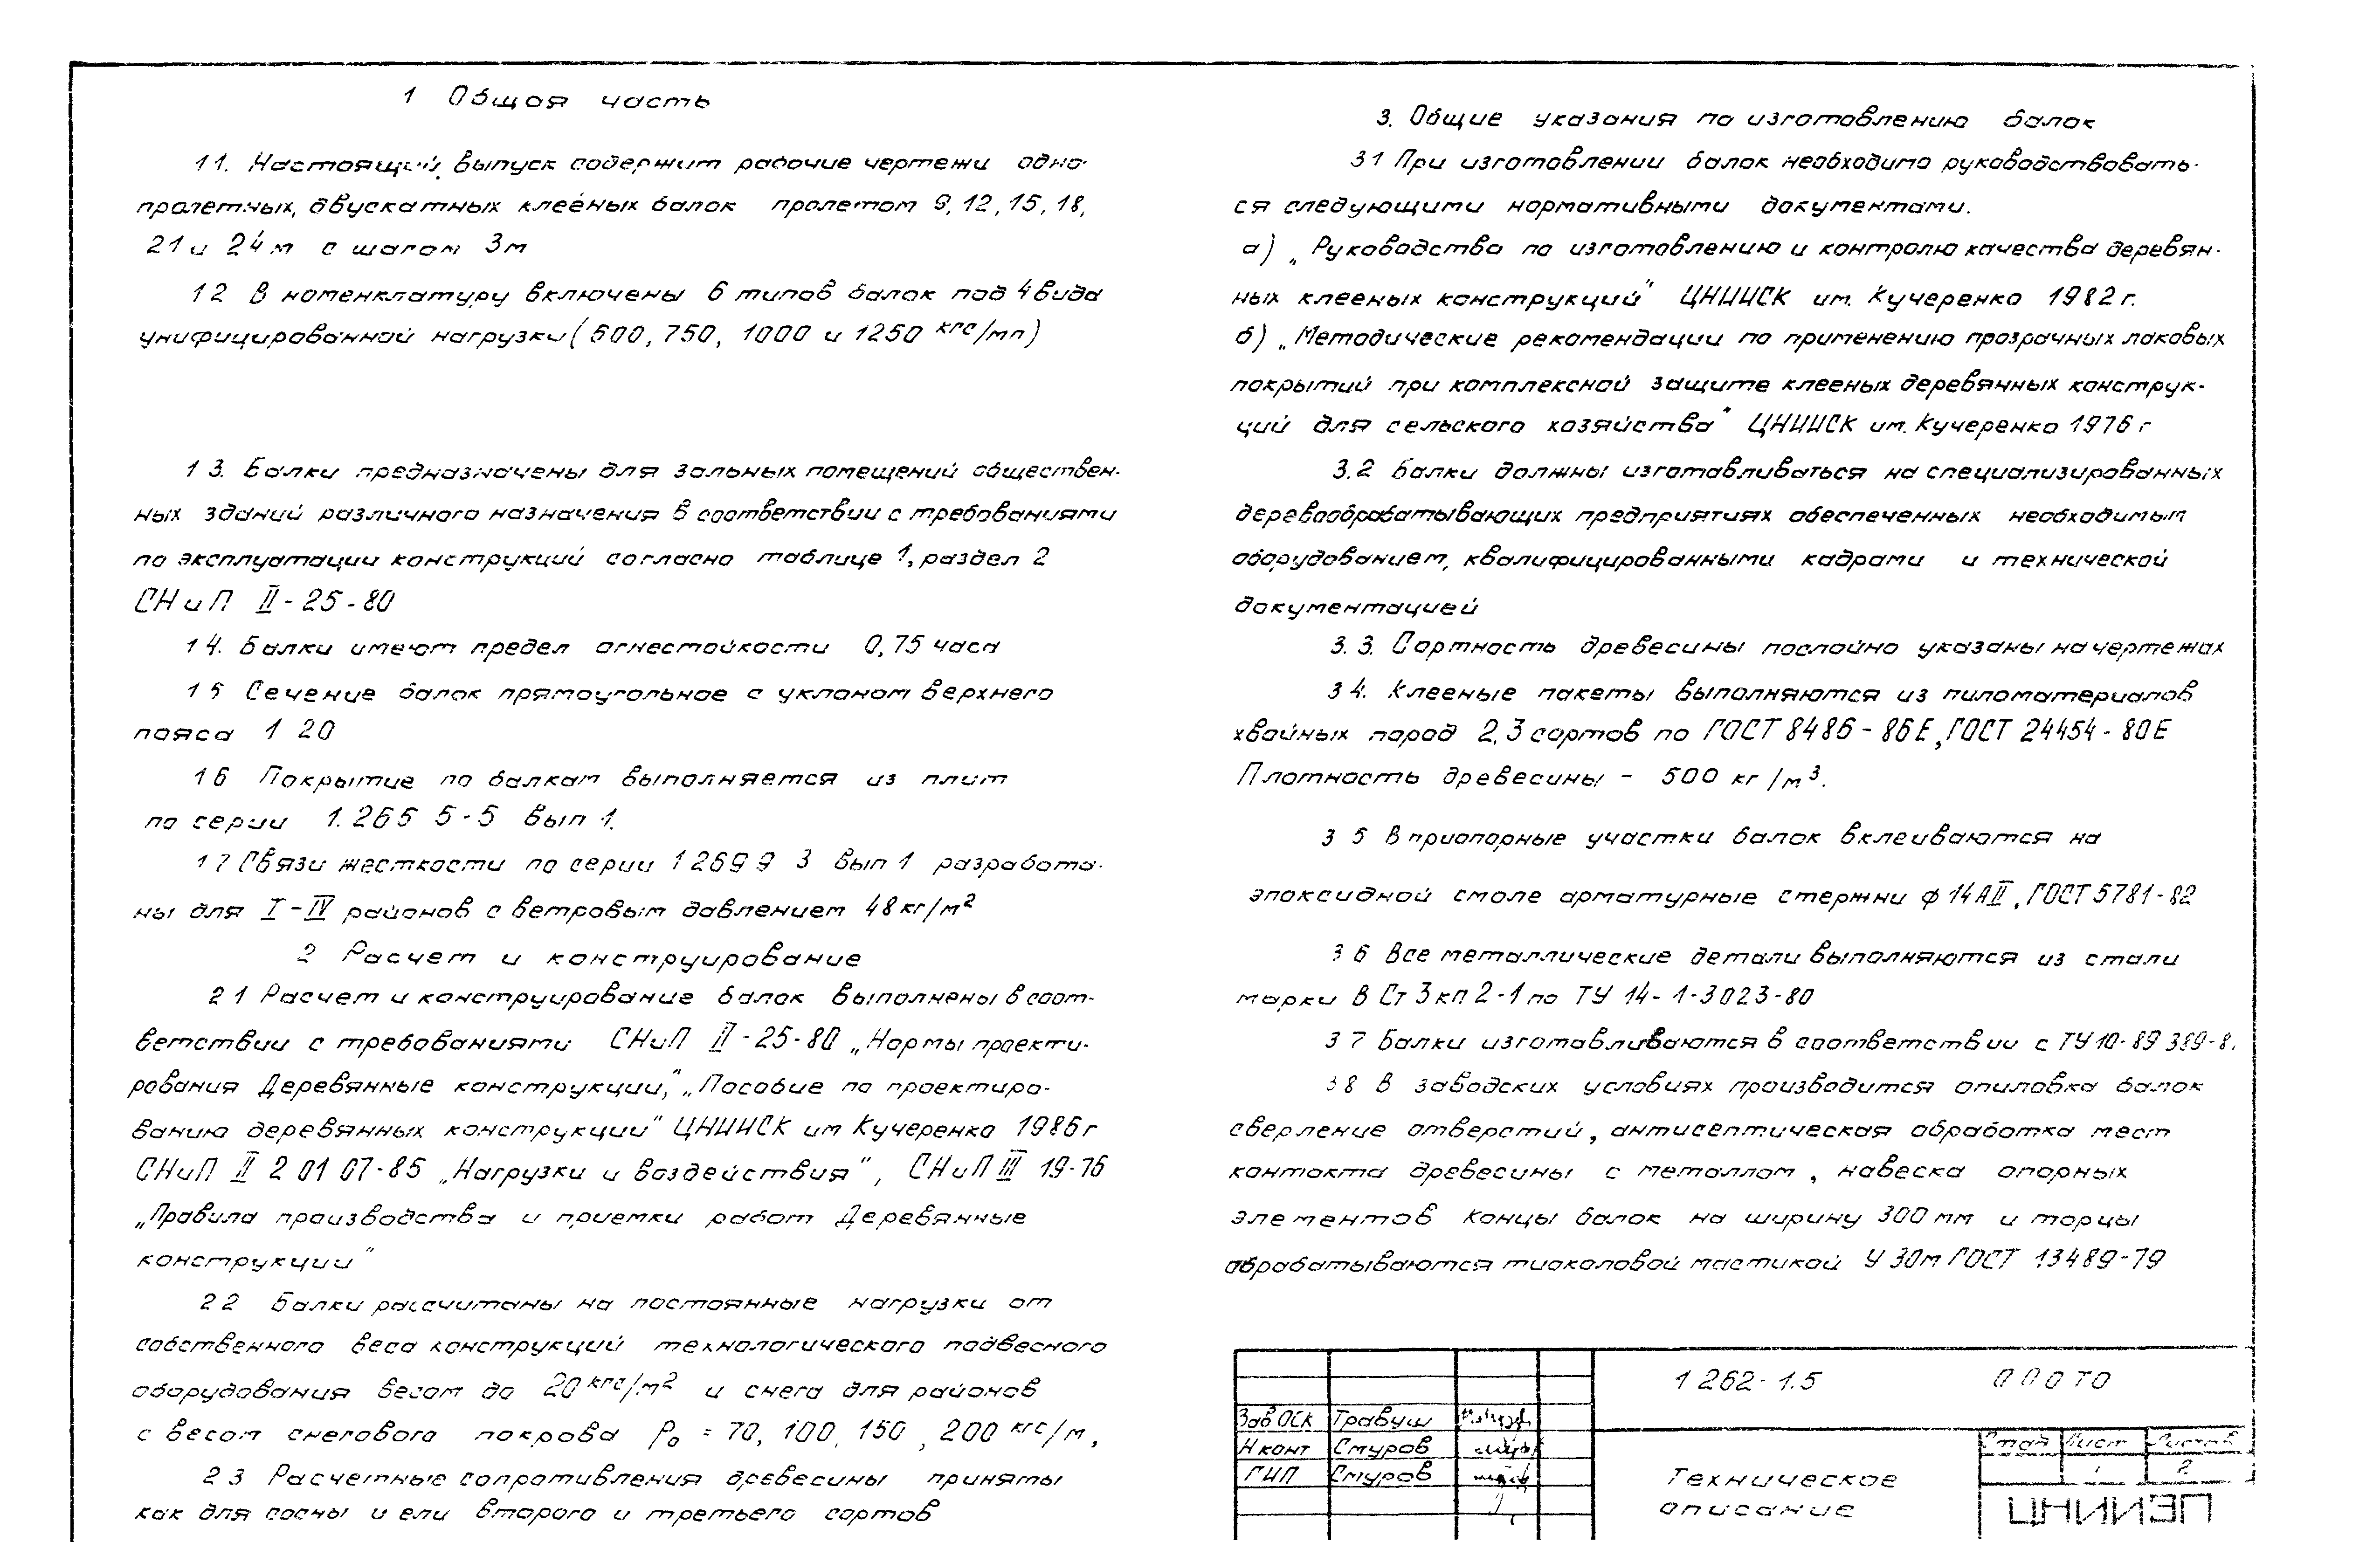 1 Общая часть
1 1. Настоящий выпуск содержит рабочие чертежи одно-
пролетных, двускатных клееных балок пролетом 9, 12, 15, 18,
21 и 24 м с шагом 3м
1 2 В номенклатуру включены 6 типов балок под 4 вида
унифицированной нагрузки (500, 750, 1000 и 1250 кгс/мп)
1 3. Балки предназначены для зальных помещений обществен-
ных зданий различного назначения в соответствии с требованиями
по эксплуатации конструкций согласно таблице 1, раздел 2
СНиП II - 25 - 80
1 4. Балки имеют предел огнестойкости 0,75 часа
1 5 Сечение балок прямоугольное с уклоном верхнего
пояса 1 20
1 6 Покрытие по балкам выполняется из плит
по серии 1. 265 5 - 5 вып 1.
1 7 Связи жесткости по серии 1 269 9 3 вып 1 разработа-
ны для I - IV районов с ветровым давлением 48 кг/м²
2 Расчет и конструирование
2 1 Расчет и конструирование балок выполнены в соот-
ветствии с требованиями СНиП II - 25 - 80 „Нормы проекти-
рования Деревянные конструкции", „Пособие по проектиро-
ванию деревянных конструкции" ЦНИИСК им Кучеренко 1986г
СНиП II 2 01 07-85 „Нагрузки и воздействия", СНиП III 19-76
„Правила производства и приемки работ Деревянные
конструкции"
2 2 Балки рассчитаны на постоянные нагрузки от
собственного веса конструкций технологического подвесного
оборудования весом до 20 кгс/м² и снега для районов
с весом снегового покрова Ро = 70, 100, 150, 200 кгс/м,
2 3 Расчетные сопротивления древесины приняты
как для сосны и ели второго и третьего сортов
3. Общие указания по изготовлению балок
3 1 При изготовлении балок необходимо руководствовать-
ся следующими нормативными документами.
а) „Руководство по изготовлению и контролю качества деревян-
ных клееных конструкций" ЦНИИСК им. Кучеренко 1982 г.
б) „Методические рекомендации по применению прозрачных лаковых
покрытий при комплексной защите клееных деревянных конструк-
ций для сельского хозяйства" ЦНИИСК им. Кучеренко 1976 г
3.2 Балки должны изготавливаться на специализированных
деревообрабатывающих предприятиях обеспеченных необходимым
оборудованием, квалифицированными кадрами и технической
документацией
3. 3. Сортность древесины послойно указаны на чертежах
3 4. Клееные пакеты выполняются из пиломатериалов
хвойных пород 2, 3 сортов по ГОСТ 8486 - 86 Е, ГОСТ 24454 - 80 Е
Плотность древесины - 500 кг /м³.
3 5 В приопорные участки балок вклеиваются на
эпоксидной смоле арматурные стержни ф 14 АII, ГОСТ 5781 - 82
3 6 Все металлические детали выполняются из стали
марки В Ст 3 кп 2 - 1 по ТУ 14 - 1 - 3023 - 80
3 7 Балки изготавливаются в соответствии с ТУ 10 - 89 389 - 8.
3 8 В заводских условиях производится опиловка балок
сверление отверстий, антисептическая обработка мест
контакта древесины с металлом, навеска опорных
элементов Концы балок на ширину 300 мм и торцы
обрабатываются тиоколовой мастикой У 30м ГОСТ 13489-79
1 262 - 1.5 0 0 0 ТО
Зав ОСК Травуш
Н конт Смуров
ГИП Смуров
Техническое
описание
Стад Лист Листов
1 2
ЦНИИЭП